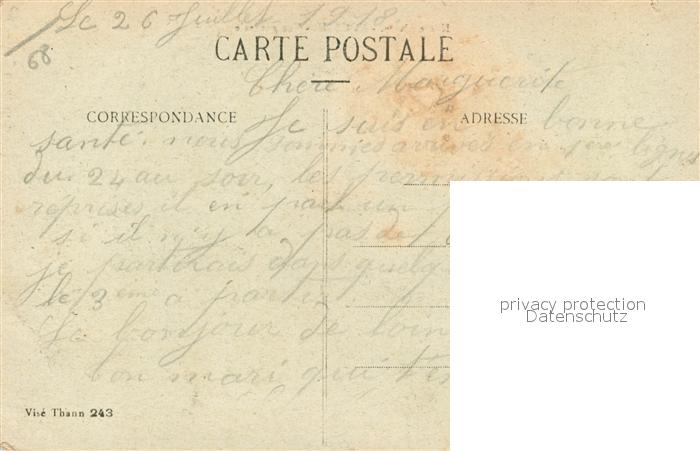 Le 26 Juillet 1918
68
CARTE POSTALE
Chère Marguerite
CORRESPONDANCE
ADRESSE
Je suis en bonne
santé. nous sommes arrivés en 1ere ligne
du 24 au soir, les
reprises il en part un
si il n'y a pas de
je partirais dans quelq
le 3ème a partir
Le bonjour de loin
ton mari qui t'
privacy protection
Datenschutz
Visé Thann 243